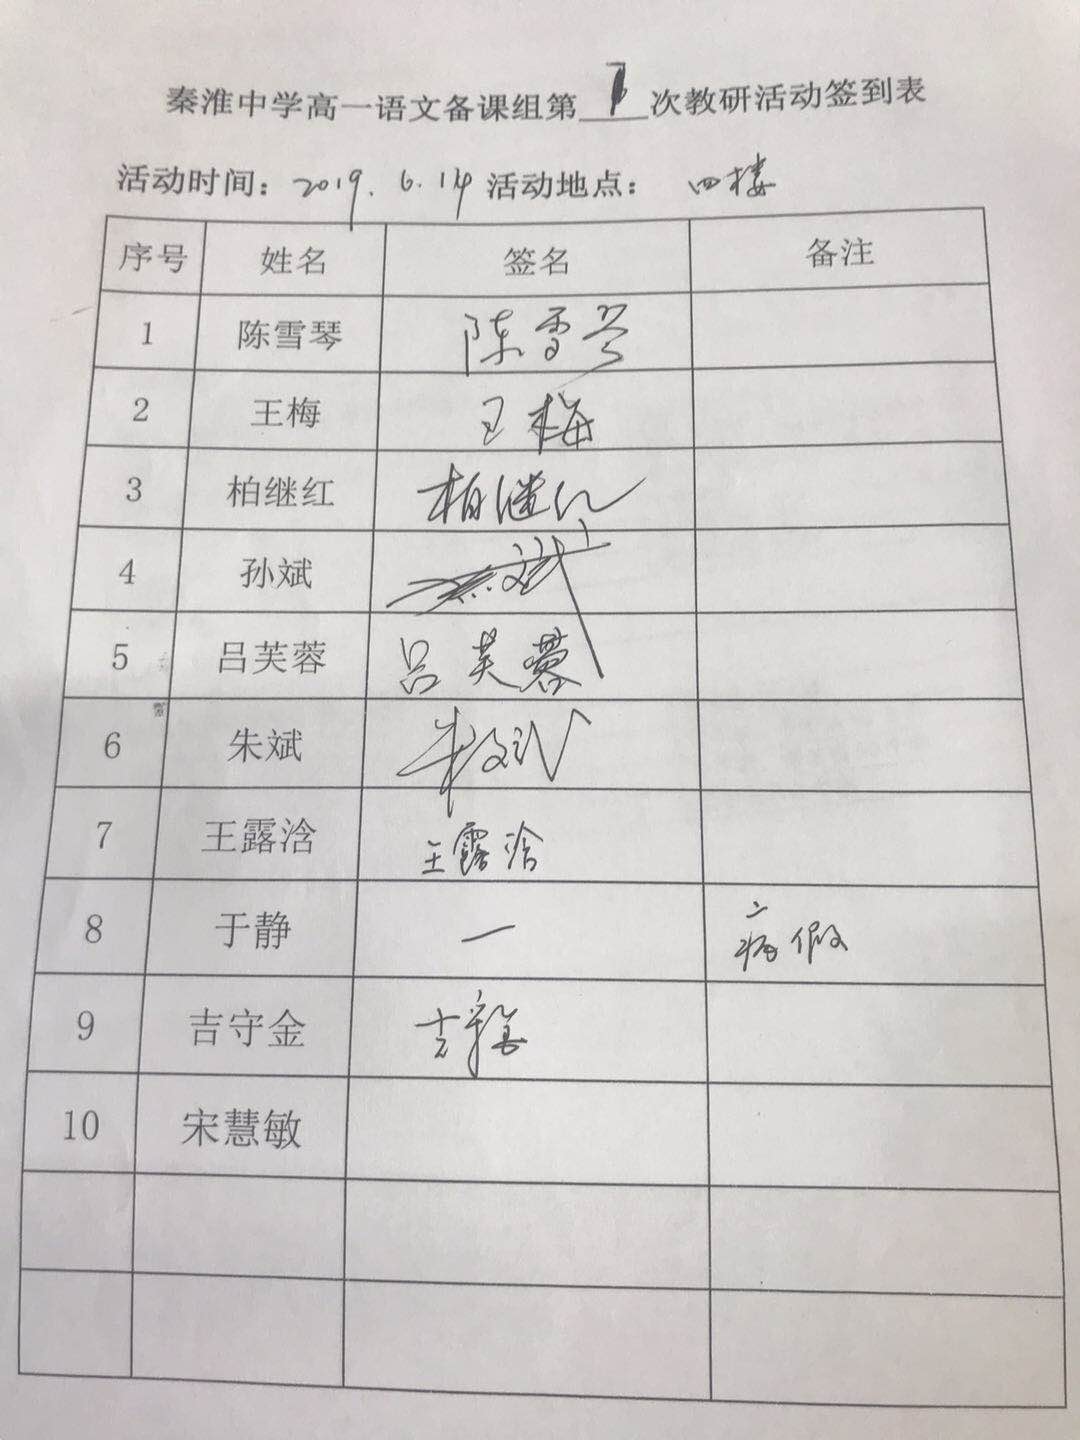 秦淮中学高一语文备课组第 次教研活动签到表
活动时间：2019.6.14 活动地点： 四楼
序号 姓名 签名 备注
1 陈雪琴 陈雪琴
2 王梅 王梅
3 柏继红 柏继红
4 孙斌 孙斌
5 吕芙蓉 吕芙蓉
6 朱斌 朱斌
7 王露浛 王露浛
8 于静 一 病假
9 吉守金 吉守金
10 宋慧敏